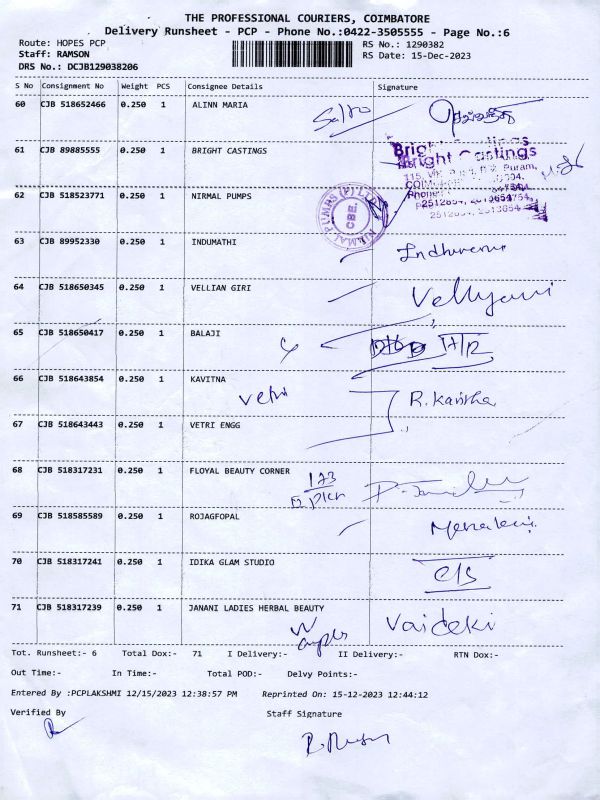 THE PROFESSIONAL COURIERS, COIMBATORE
Delivery Runsheet - PCP - Phone No.:0422-3505555 - Page No.:6
Route: HOPES PCP
RS No.: 1290382
Staff: RAMSON
RS Date: 15-Dec-2023
DRS No.: DCJB129038206
S No Consignment No Weight PCS Consignee Details Signature
60 CJB 518652466 0.250 1 ALINN MARIA
61 CJB 89885555 0.250 1 BRIGHT CASTINGS Bright Castings
62 CJB 518523771 0.250 1 NIRMAL PUMPS NIRMAL PUMPS (P) LTD CBE.
63 CJB 89952330 0.250 1 INDUMATHI
64 CJB 518650345 0.250 1 VELLIAN GIRI
65 CJB 518650417 0.250 1 BALAJI
66 CJB 518643854 0.250 1 KAVITNA R. Kavitha
Vetri
67 CJB 518643443 0.250 1 VETRI ENGG
68 CJB 518317231 0.250 1 FLOYAL BEAUTY CORNER
173
69 CJB 518585589 0.250 1 ROJAGFOPAL
70 CJB 518317241 0.250 1 IDIKA GLAM STUDIO C/S
71 CJB 518317239 0.250 1 JANANI LADIES HERBAL BEAUTY Vaideki
Tot. Runsheet:- 6 Total Dox:- 71 I Delivery:- II Delivery:- RTN Dox:-
Out Time:- In Time:- Total POD:- Delvy Points:-
Entered By :PCPLAKSHMI 12/15/2023 12:38:57 PM Reprinted On: 15-12-2023 12:44:12
Verified By Staff Signature